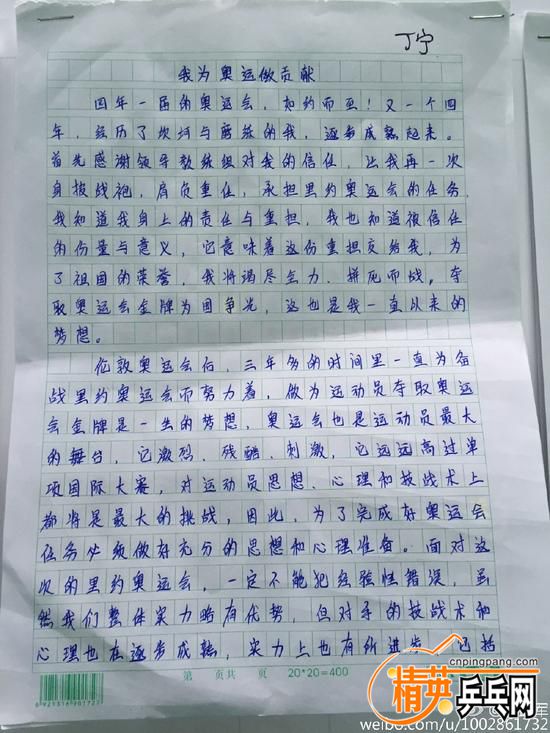 丁宁
我为奥运做贡献
四年一届的奥运会,如约而至!又一个四
年,经历了坎坷与磨练的我,逐步成熟起来。
首先感谢领导教练组对我的信任,让我再一次
身披战袍,肩负重任,承担里约奥运会的任务。
我知道我身上的责任与重担,我也知道被信任
的份量与意义,它意味着这份重担交给我,为
了祖国的荣誉,我将竭尽全力、拼死而战。夺
取奥运会金牌为国争光,这也是我一直以来的
梦想。
伦敦奥运会后,三年多的时间里一直为备
战里约奥运会而努力着,做为运动员夺取奥运
会金牌是一生的梦想,奥运会也是运动员最大
的舞台,它激烈、残酷、刺激,它远远高过单
项国际大赛,对运动员思想、心理和技战术上
都将是最大的挑战,因此,为了完成好奥运会
任务必须做好充分的思想和心理准备。面对这
次的里约奥运会,一定不能犯经验性错误,虽
然我们整体实力略有优势,但对手的技战术和
心理也在逐步成熟,实力上也有所进步,包括
第 页共 页 20*20=400
6921316901727
cnpingpang.com
精英乒乓网
weibo.com/u/1002861732